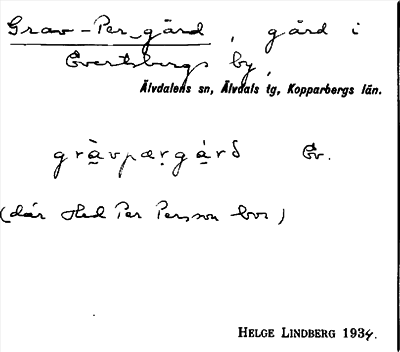 Grav-Per-gård, gård i
Evertsbergs by,
Älvdalens sn, Älvdals tg, Kopparbergs län.
gràvpærgárd Ev.
(där Hed Per Persson bor)
HELGE LINDBERG 1934.